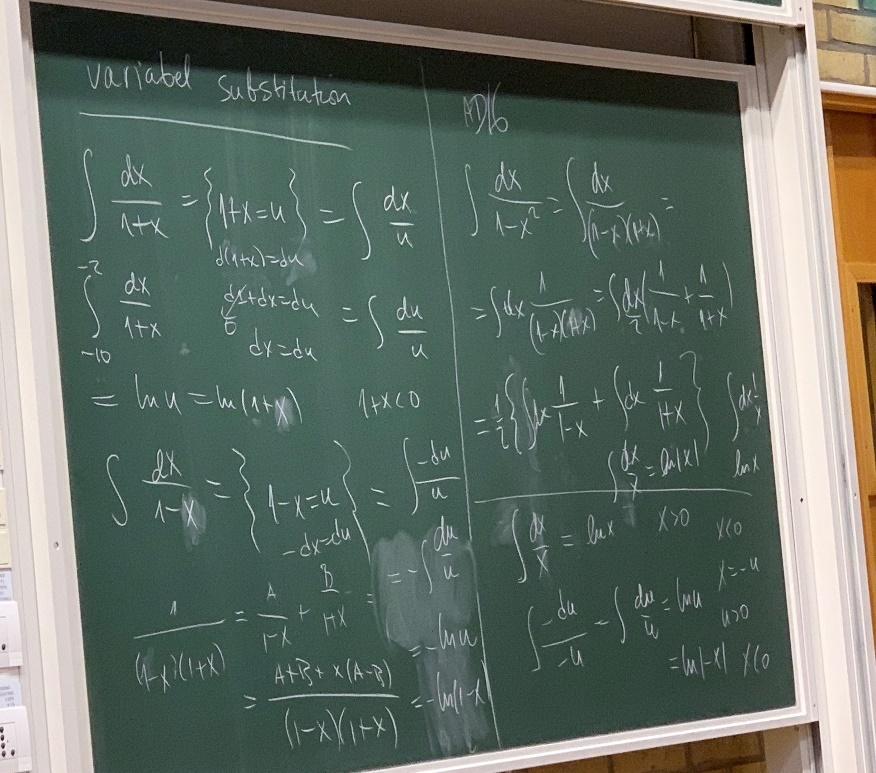 variabel substitution
∫ dx/(1+x) = {1+x=u} = ∫ dx/u
d(1+x)=du
∫_{-10}^{-2} dx/(1+x) d1+dx=du = ∫ du/u
0
dx=du
= ln u = ln(1+x) 1+x<0
∫ dx/(1-x) = {1-x=u} = ∫ -du/u
-dx=du
= -∫ du/u
1/((1-x)(1+x)) = A/(1-x) + B/(1+x) =
= -ln u
= (A+B+x(A-B))/((1-x)(1+x))
= -ln(1-x)
∫ dx/(1-x²) = ∫ dx/((1-x)(1+x)) =
= ∫dx 1/((1-x)(1+x)) = ∫dx/2 (1/(1-x) + 1/(1+x))
= 1/2 {∫dx 1/(1-x) + ∫dx 1/(1+x)} ∫dx 1/x
∫ dx/x = ln|x| ln x
∫ dx/x = ln x x>0 x<0
x=-u
∫ -du/-u = ∫ du/u = ln u u>0
= ln|-x| x<0